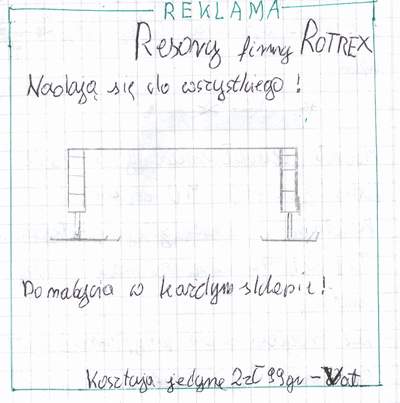 REKLAMA
Resory firmy ROTREX
Nadają się do wszystkiego!
Do nabycia w każdym sklepie!
Kosztują jedyne 2zł 99gr - Vat